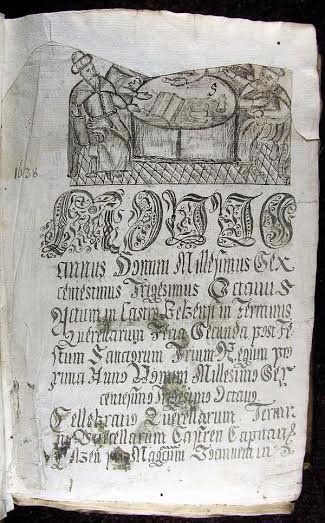 1638.
annus Domini Millesimus Sex
centesimus Trigesimus Octauus
Actum in Castro Belzensi in Terminis
Querellarum Feria Secunda post Fe
stum Sanctorum Trium Regum pro
xima Anno Domini Millesimo Sex
centesimo Trigesimo Octauo
Celebratio Querellarum
Querellarum Castren Capitan